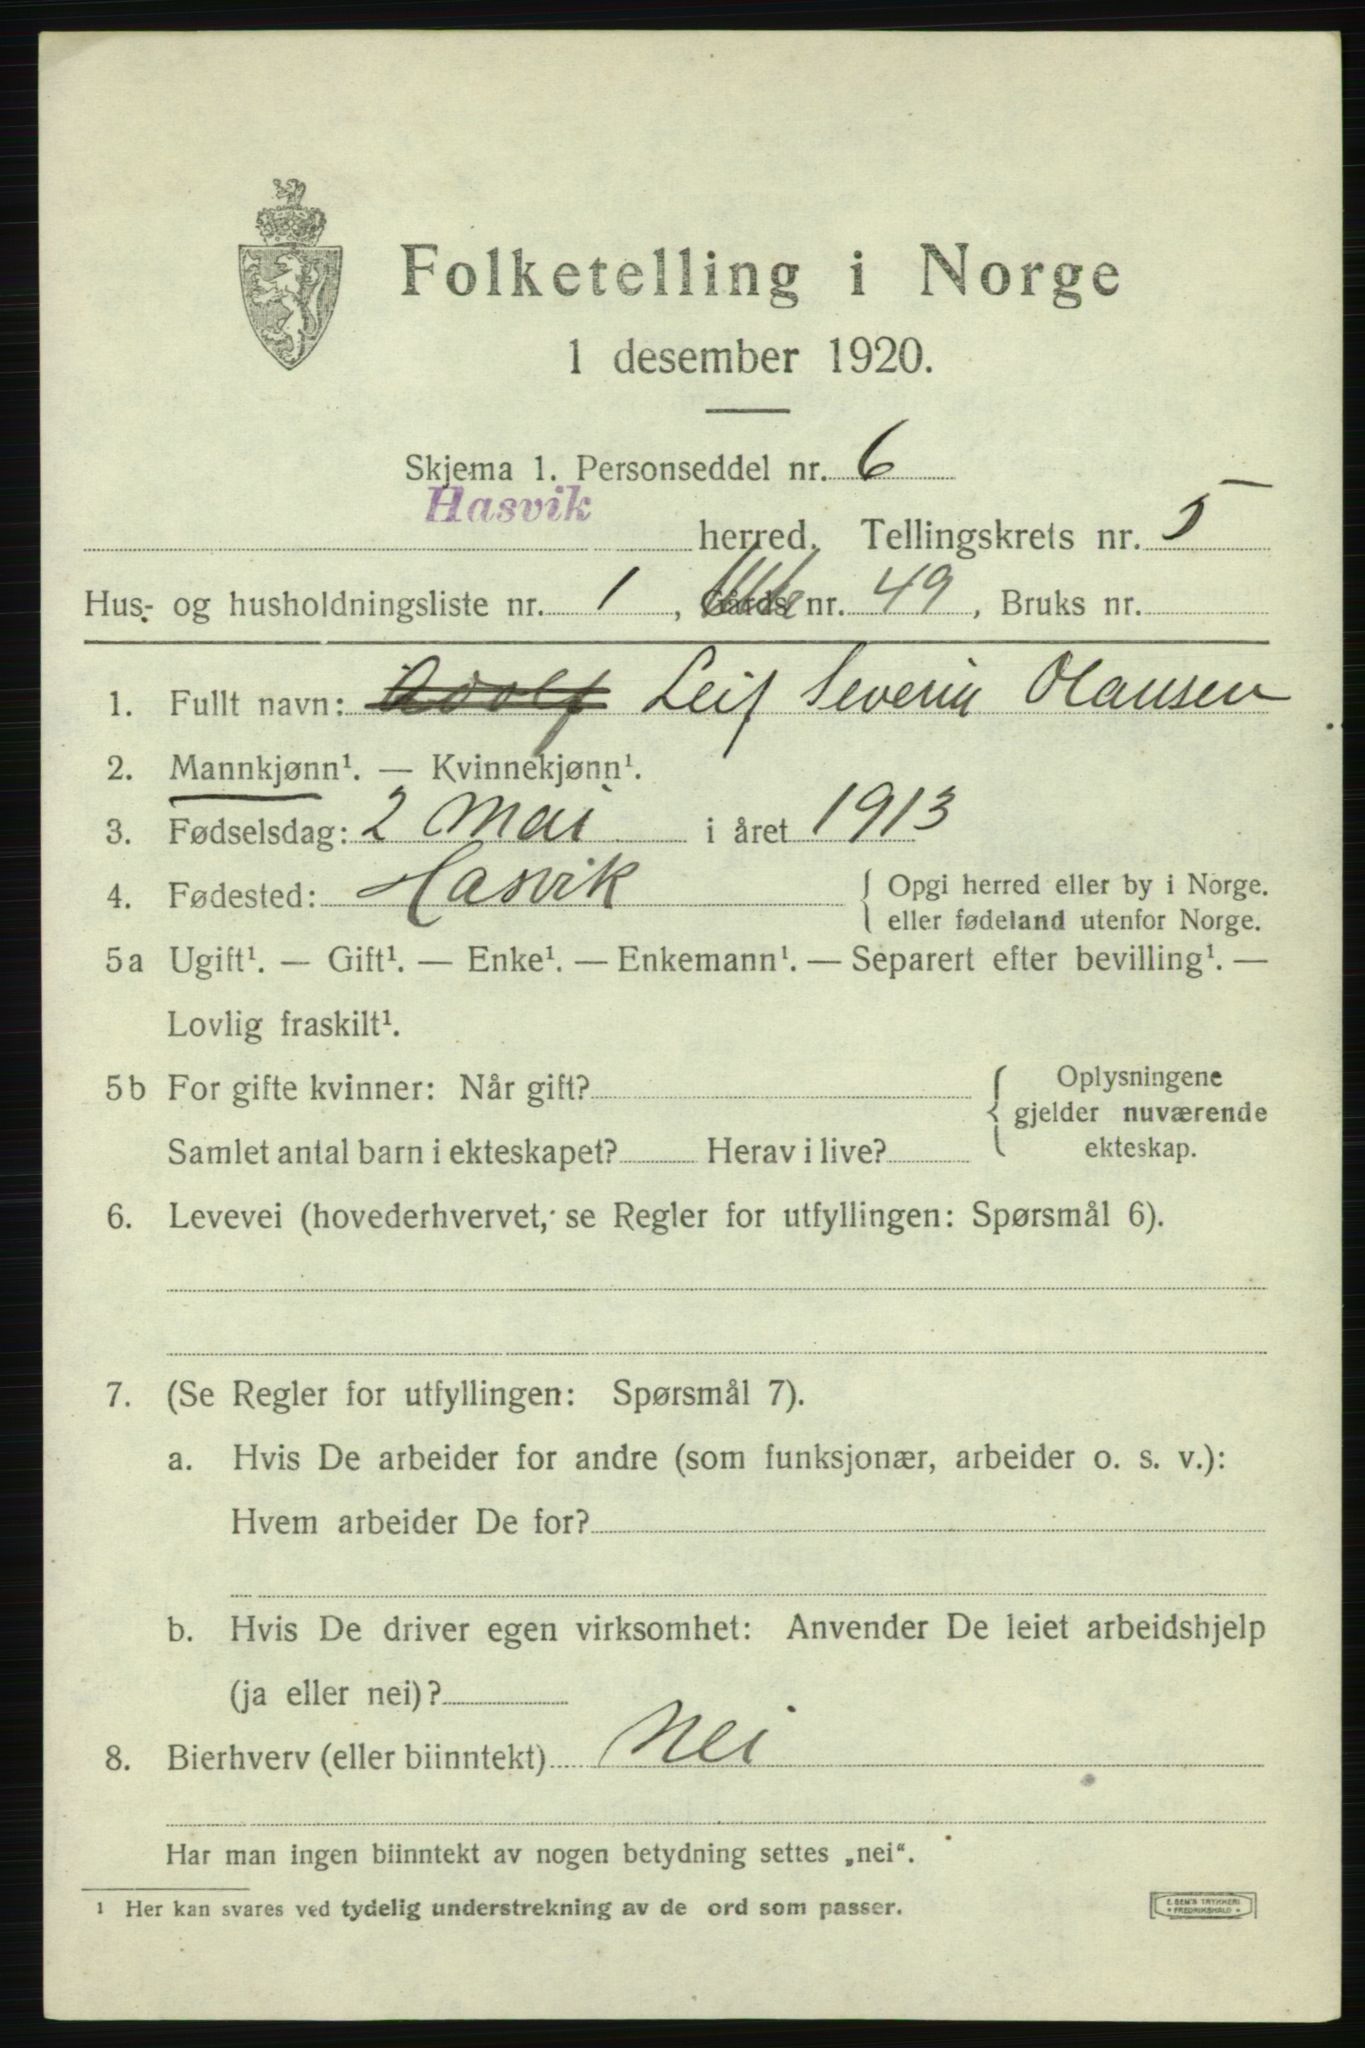 Folketelling i Norge
1 desember 1920.
Skjema 1. Personseddel nr. 6
Hasvik herred. Tellingskrets nr. 5
Hus- og husholdningsliste nr. 1, Gårds nr. 49, Bruks nr.
1. Fullt navn: Adolf Leif Severin Olausen
2. Mannkjønn¹. — Kvinnekjønn¹.
3. Fødselsdag: 2 Mai i året 1913
4. Fødested: Hasvik { Opgi herred eller by i Norge.
eller fødeland utenfor Norge.
5a Ugift¹. — Gift¹. — Enke¹. — Enkemann¹. — Separert efter bevilling¹. —
Lovlig fraskilt¹.
5b For gifte kvinner: Når gift? { Oplysningene
gjelder nuværende
Samlet antal barn i ekteskapet? Herav i live? ekteskap.
6. Levevei (hovederhvervet, se Regler for utfyllingen: Spørsmål 6).
7. (Se Regler for utfyllingen: Spørsmål 7).
a. Hvis De arbeider for andre (som funksjonær, arbeider o. s. v.):
Hvem arbeider De for?
b. Hvis De driver egen virksomhet: Anvender De leiet arbeidshjelp
(ja eller nei)?
8. Bierhverv (eller biinntekt) Nei
Har man ingen biinntekt av nogen betydning settes „nei“.
¹ Her kan svares ved tydelig understrekning av de ord som passer.
E. SEM'S TRYKKERI
FREDRIKSHALD